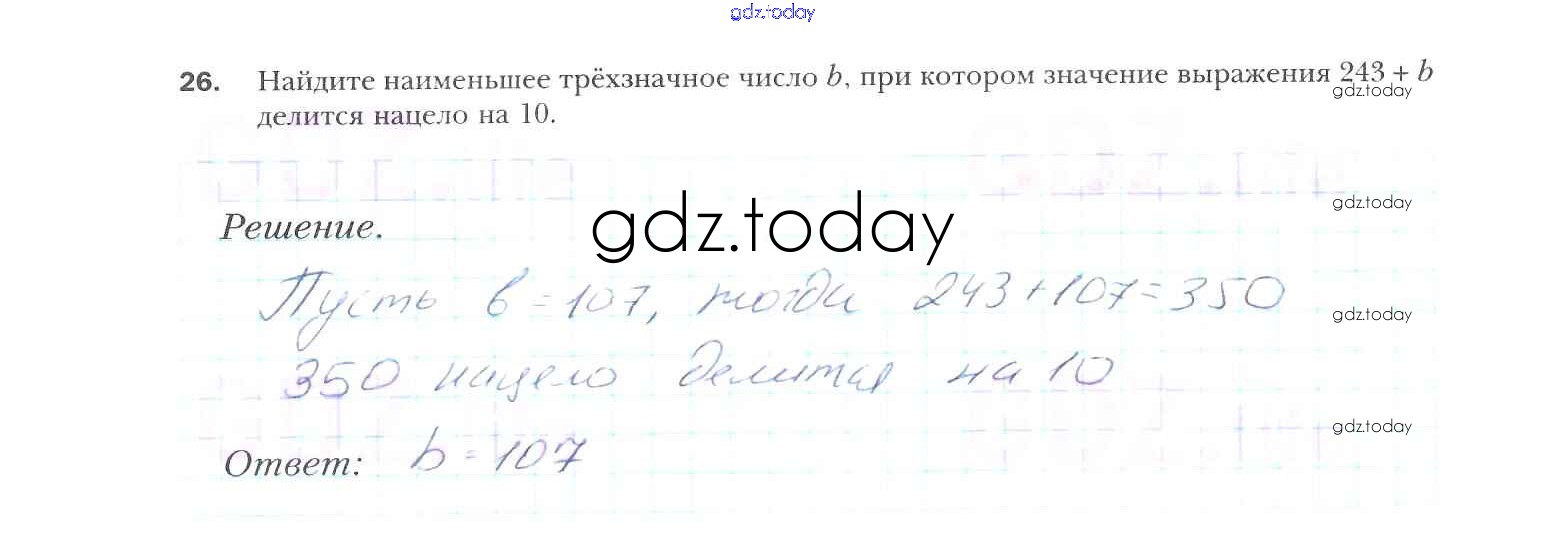 gdz.today
26. Найдите наименьшее трёхзначное число b, при котором значение выражения 243 + b
gdz.today
делится нацело на 10.
gdz.today
Решение.
gdz.today
Пусть b = 107, тогда 243 + 107 = 350
gdz.today
350 нацело делится на 10
gdz.today
Ответ: b = 107